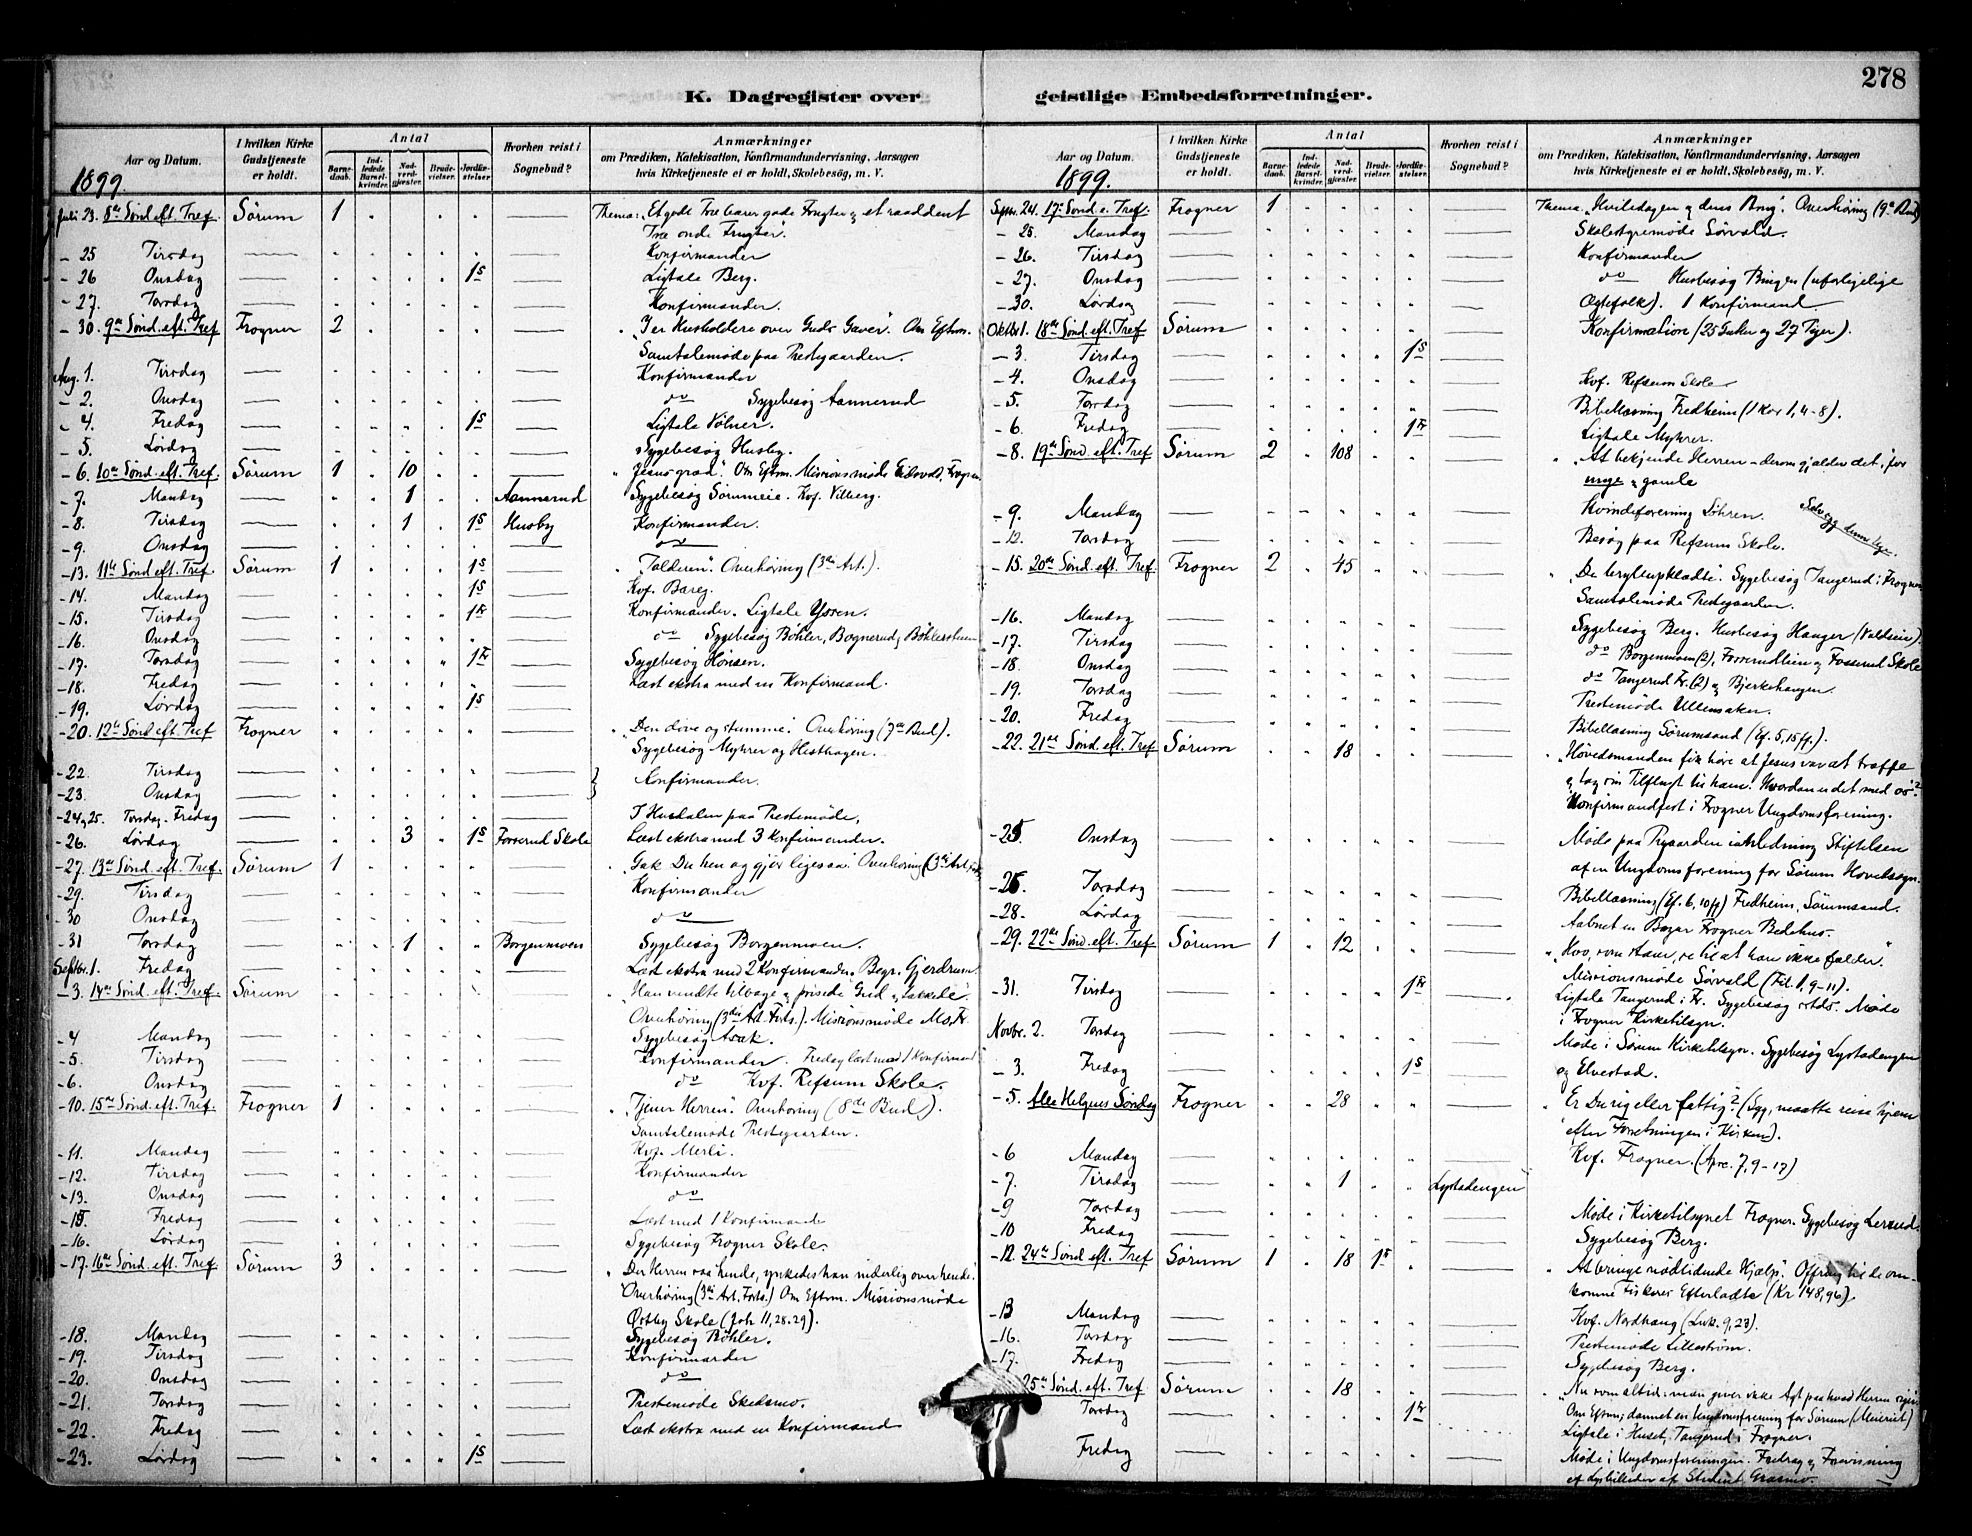 278
K. Dagregister over geistlige Embedsforretninger.
Aar og Datum.
I hvilken Kirke Gudstjeneste er holdt.
Antal
Barnedaab.
Indledede Barselkvinder.
Nadverdgjæster.
Brudevielser.
Jordfæstelser.
Hvorhen reist i Sognebud?
Anmærkninger
om Prædiken, Katekisation, Konfirmandundervisning, Aarsagen
hvis Kirketjeneste ei er holdt, Skolebesøg, m. V.
1899.
Juli 23. 8de Sønd. eft. Tref. Sørum 1 Thema: "Et godt Træ bærer gode Frugter og et raaddent
Træ onde Frugter.
- 25 Tirsdag Konfirmander
- 26 Onsdag 1S Ligtale Berg.
- 27. Torsdag Konfirmander.
- 30. 9de Sønd. eft. Tref Frogner 2 "I er Husholdere over Guds Gaver". Om Eftm.
Samtalemøde paa Prestegaarden.
Aug. 1. Tirsdag Konfirmander
- 2. Onsdag do Sygebesøg Aannerud
- 4. Fredag 1S Ligtale Vølner.
- 5. Lørdag Sygebesøg Husby.
- 6. 10de Sønd. eft. Tref. Sørum 1 10 "Jesus graad". Om Eftm. Missionsmøde Frogner
- 7. Mandag 1 Aannerud Sygebesøg Sørumeie. Kvf. Vilberg.
- 8. Tirsdag 1 1S Husby Konfirmander.
- 9. Onsdag do
- 13. 11te Sønd. eft. Tref. Sørum 1 1S "Tolderen". Overhøring (3die Art.).
- 14. Mandag 1S Kvf. Bareg.
- 15. Tirsdag 1Fr Konfirmander. Ligtale
- 16. Onsdag do Sygebesøg Bøhler, Bognerud,
- 17. Torsdag 1Fr Sygebesøg Hønsen.
- 18. Fredag Læst ekstra med en Konfirmand.
- 19. Lørdag 1S
- 20. 12te Sønd. eft. Tref Frogner "Den døve og stumme". Overhøring (7de Bud).
Sygebesøg Myhrer og Hesthagen.
- 22. Tirsdag } Konfirmander.
- 23. Onsdag
- 24 og 25. Torsdag. Fredag I Hurdalen paa Prestemøde.
- 26. Lørdag 3 1S Fosserud Skole Læst ekstra med 3 Konfirmander.
- 27. 13de Sønd. eft. Tref. Sørum 1 "Gak Du hen og gjør ligesaa". Overhøring (3die Art.
- 29. Tirsdag Konfirmander
- 30 Onsdag do
- 31 Torsdag 1 Borgenmoen Sygebesøg Borgenmoen.
Septbr. 1. Fredag Læst ekstra med 2 Konfirmander. Begr. Gjerdrum
- 3. 14de Sønd. eft. Tref. Sørum "Han vendte tilbage og prisede Gud og takkede".
Overhøring (3die Art. Forts.). Missionsmøde Mo, Fr.
- 4 Mandag Sygebesøg Asak.
- 5. Tirsdag Konfirmander. Fredag læst med 1 Konfirmand
- 6. Onsdag do Kvf. Refsum Skole.
- 10. 15de Sønd. eft. Tref. Frogner 1 "Tjener Herren". Overhøring (8de Bud).
Samtalemøde Prestegaarden.
- 11. Mandag Kvf. Merli.
- 12. Tirsdag Konfirmander
- 13. Onsdag do
- 15. Fredag Læst med 1 Konfirmand
- 16. Lørdag Sygebesøg Frogner Skole.
- 17. 16de Sønd. eft. Tref Sørum 3 "Der Herren saa hende, ynkedes han inderlig over hende".
Overhøring (3die Art. Forts.) Om Eftm. Missionsmøde
Østby Skole (Joh 11, 28.29).
- 18. Mandag Sygebesøg Bøhler.
- 19. Tirsdag Konfirmander
- 20. Onsdag do
- 21. Torsdag Prestemøde Skedsmo.
- 22. Fredag Læst ekstra med en Konfirmand
- 23. Lørdag 1S
Aar og Datum.
I hvilken Kirke Gudstjeneste er holdt.
Antal
Barnedaab.
Indledede Barselkvinder.
Nadverdgjæster.
Brudevielser.
Jordfæstelser.
Hvorhen reist i Sognebud?
Anmærkninger
om Prædiken, Katekisation, Konfirmandundervisning, Aarsagen
hvis Kirketjeneste ei er holdt, Skolebesøg, m. V.
1899.
Septr. 24. 17de Sønd e. Tref. Frogner 1 Thema. "Hviledagen og dens Brug". Overhøring (9de Bud)
- 25. Mandag Skolestyremøde Sørvald.
- 26. Tirsdag Konfirmander
- 27. Onsdag do Husbesøg Bingen (uforligelige
- 30. Lørdag Ægtefolk). 1 Konfirmand
Oktbr 1. 18de Sønd. eft. Tref Sørum Konfirmation (25 Gutter og 27 Piger).
- 3. Tirsdag 1S
- 4. Onsdag Kvf. Refsum Skole
- 5. Torsdag Bibellæsning Fredheim (1 Kor 1, 4-8).
- 6. Fredag 1Fr Ligtale Myhrer.
- 8. 19de Sønd. eft. Tref Sørum 2 108 "At bekjende Herren - derom gjælder det", for
unge og gamle
- 9. Mandag Kvindeforening Løhren.
- 12. Torsdag Besøg paa Refsum Skole.
- 15. 20de Sønd. eft. Tref Frogner 2 45 "De bryllupsklædte". Sygebesøg Tangerud i Frogner
Samtalemøde Prestegaarden.
- 16. Mandag Sygebesøg Berg. Husbesøg Hanger (Valdseie).
- 17. Tirsdag do Borgenmoen (2), og Fosserud Skole
- 18. Onsdag do Tangerud Fr. (2) og Bjerkehangen.
- 19. Torsdag Prestemøde Ullensaker.
- 20. Fredag Bibellæsning Sørumsand (Ef. 5, 15 ff.).
- 22. 21de Sønd. eft. Tref Sørum 18 "Høvedsmanden fik høre at Jesus var at træffe
og tog sin Tilflugt til ham. Hvordan er det med os"?
Konfirmandfest i Frogner Ungdomsforening.
- 25 Onsdag Møde paa Rygaarden i anledning Stiftelsen
af en Ungdomsforening for Sørum Hovedsogn.
- 26. Torsdag Bibellæsning (Ef. 6, 10 ff) Fredheim, Sørumsand.
- 28. Lørdag Aabnet en Bazar Frogner Bedehus.
- 29. 22de Sønd. eft. Tref Sørum 1 12 "Hvo, som staar, se til at han ikke falder."
Missionsmøde Sørvald (Fil. 1, 9-11).
- 31. Tirsdag 1Fr Ligtale Tangerud i Fr. Sygebesøg Møde
i Frogner Kirketilsyn.
Novbr. 2. Torsdag Møde i Sørum Kirketilsyn. Sygebesøg Lystadengen
- 3. Fredag 1S og Elvestad.
- 5. Alle Helgens Søndag Frogner 28 "Er Du rig eller fattig"? (Syg, maatte reise hjem
efter Forretningen i Kirken).
- 6 Mandag Kvf. Frogner. (Apoc. 7, 9-17)
- 7. Tirsdag 1 Lystadengen
- 9 Torsdag Møde i Kirketilsynet Frogner. Sygebesøg Lerud.
- 10 Fredag Sygebesøg Berg.
- 12. 24de Sønd eft. Tref Sørum 1 18 1S "At bringe nødlidende Hjælp". Offring til de om-
komne Fiskeres Efterladte (Kr 148,96).
- 13 Mandag Kvf. Nordhaug (Luk. 9, 23).
- 16. Torsdag Prestemøde Lilleström.
- 17. Fredag Sygebesøg Berg.
25de Sønd. eft. Tref Sørum 18 "Nu som altid: man giver ikke Agt paa hvad Herren siger".
Om Eftm; dannet en Ungdomsforening for Sørum (Meieriet)
Torsdag 1Fr Ligtale i Huset, Tangerud i Frogner.
Fredag Møde i Ungdomsforeningen. Foredrag og Forevisning
af Lysbilleder af Student